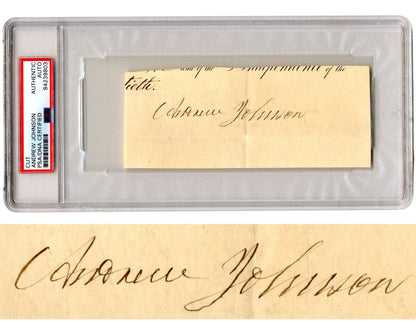 CUT
ANDREW JOHNSON
PSA/DNA CERTIFIED
AUTHENTIC
AUTO
84239803
and of the Independence of the
tieth.
Andrew Johnson
Andrew Johnson